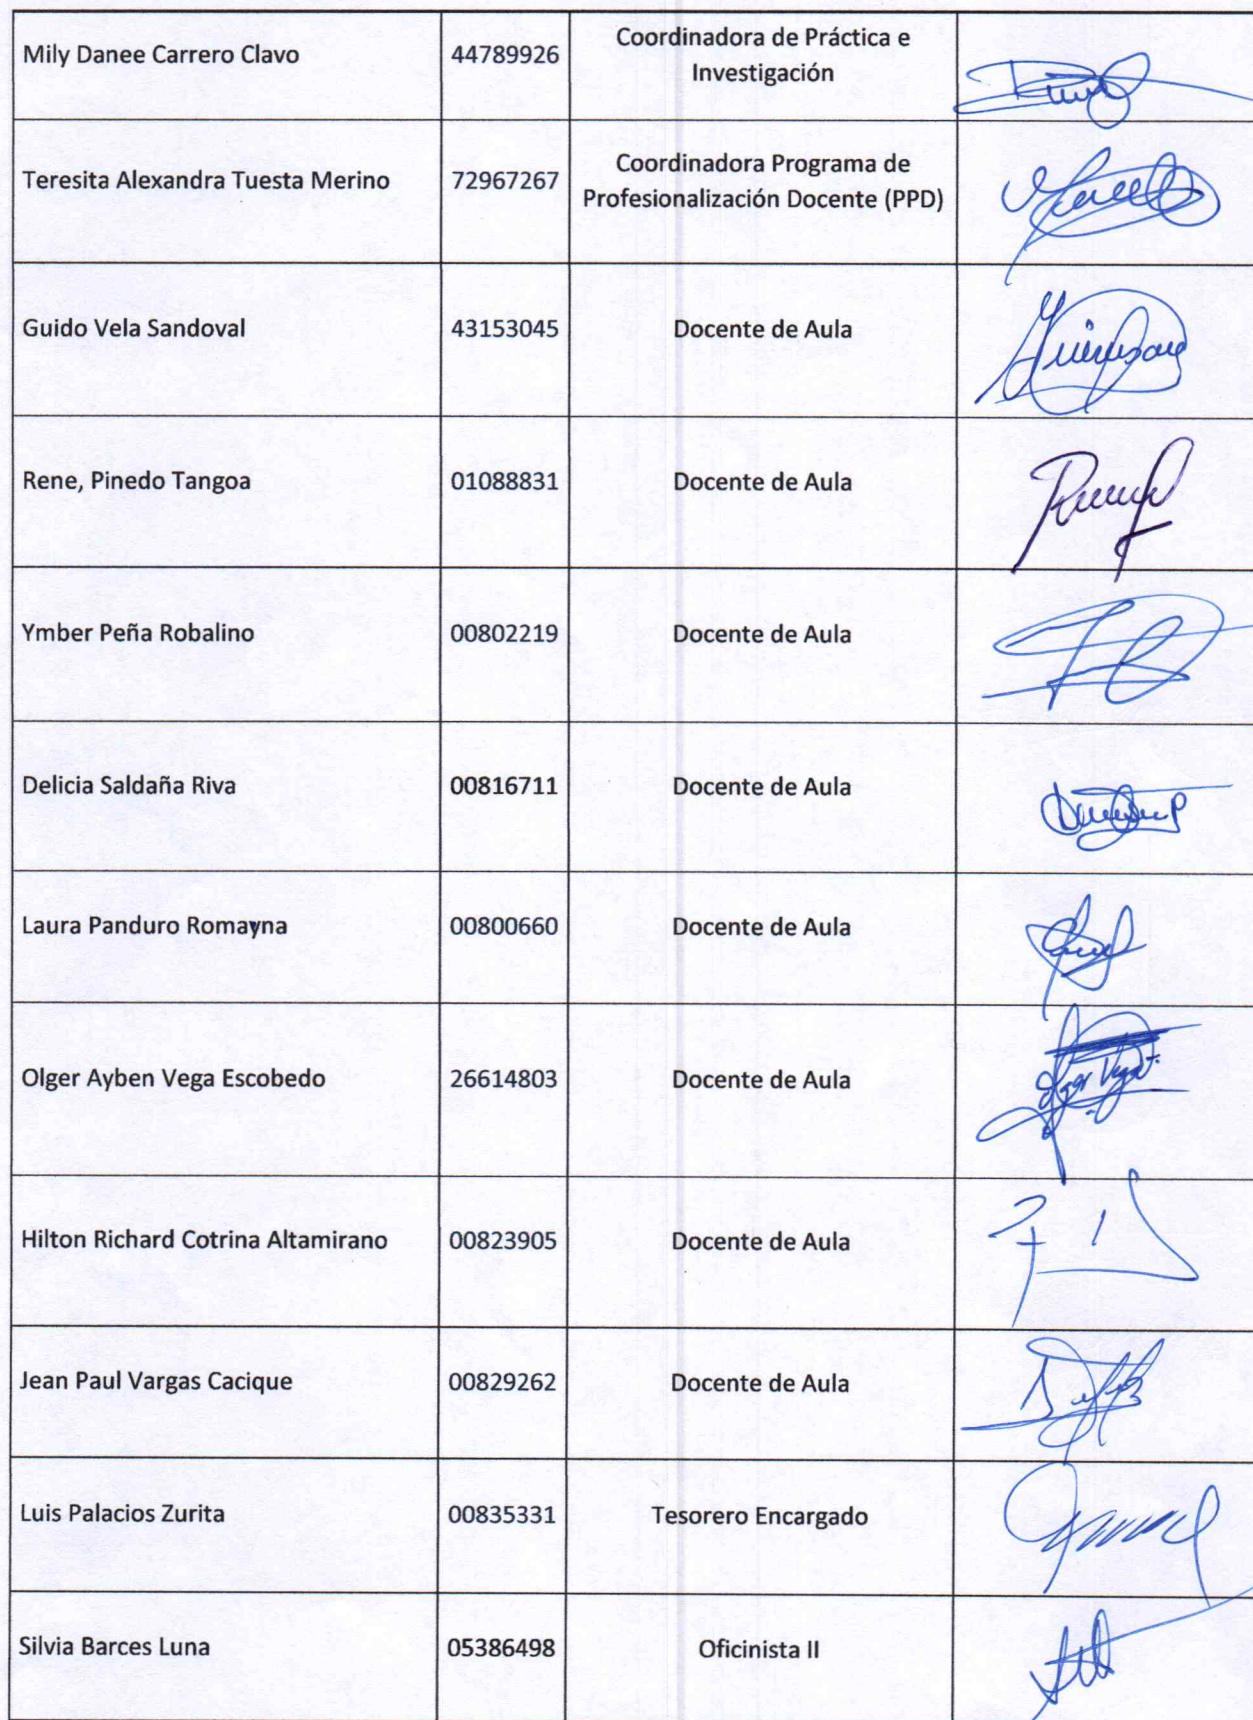 Mily Danee Carrero Clavo 44789926 Coordinadora de Práctica e
Investigación
Teresita Alexandra Tuesta Merino 72967267 Coordinadora Programa de
Profesionalización Docente (PPD)
Guido Vela Sandoval 43153045 Docente de Aula
Rene, Pinedo Tangoa 01088831 Docente de Aula
Ymber Peña Robalino 00802219 Docente de Aula
Delicia Saldaña Riva 00816711 Docente de Aula
Laura Panduro Romayna 00800660 Docente de Aula
Olger Ayben Vega Escobedo 26614803 Docente de Aula
Hilton Richard Cotrina Altamirano 00823905 Docente de Aula
Jean Paul Vargas Cacique 00829262 Docente de Aula
Luis Palacios Zurita 00835331 Tesorero Encargado
Silvia Barces Luna 05386498 Oficinista II